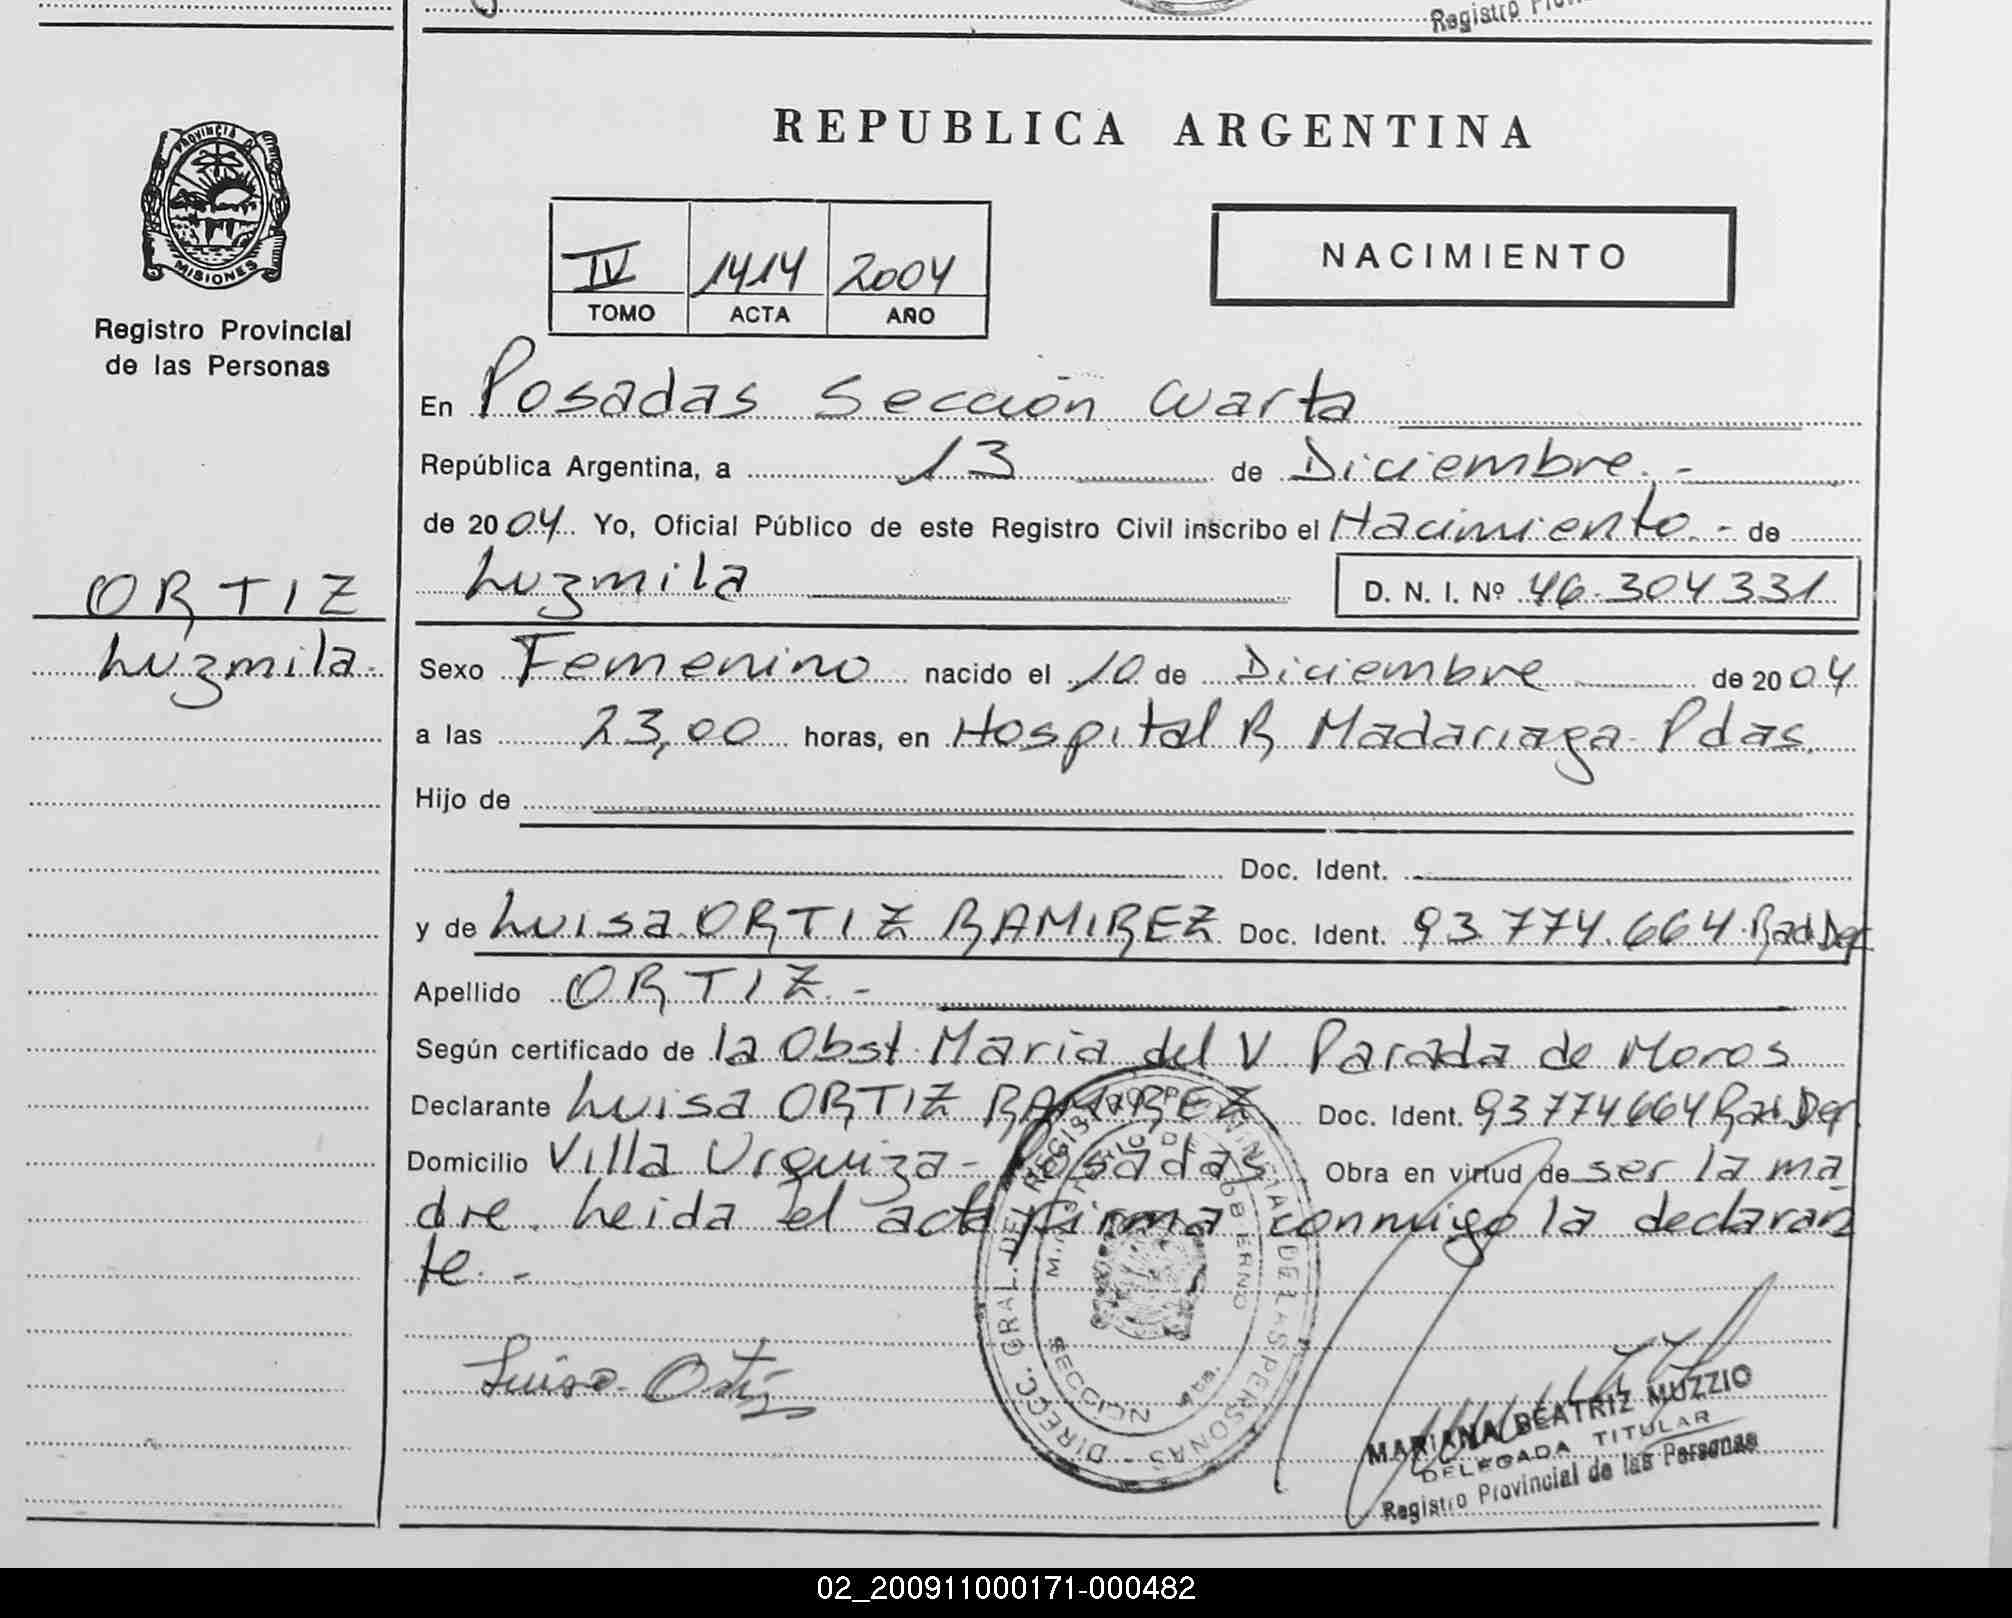 Registro Prov
REPUBLICA ARGENTINA
PROVINCIA D
MISIONES
Registro Provincial
de las Personas
IV 1414 2004
TOMO ACTA AÑO
NACIMIENTO
En Posadas Sección Cuarta
República Argentina, a 13 de Diciembre.-
de 2004 Yo, Oficial Público de este Registro Civil inscribo el Nacimiento.- de
Luzmila D. N. I. Nº 46.304331
ORTIZ
Luzmila.
Sexo Femenino nacido el 10 de Diciembre de 2004
a las 23,00 horas, en Hospital R Madariaga- Pdas.
Hijo de
Doc. Ident.
y de Luisa ORTIZ RAMIREZ Doc. Ident. 93 774.664.Rad.Der
Apellido ORTIZ.-
Según certificado de la Obst. Maria del V. Parada de Moros
Declarante Luisa ORTIZ RAMIREZ Doc. Ident. 93774664 Rad.Der
Domicilio Villa Urquiza - Posadas Obra en virtud de ser la ma
dre. Leida el acta firma conmigo la declaran
te.-
Luisa Ortiz
DIRECC. GRAL. DEL REGISTRO PROVINCIAL DE LAS PERSONAS -
MINISTERIO DE GOBIERNO
SECCION 4ta.
MARIANA BEATRIZ MUZZIO
DELEGADA TITULAR
Registro Provincial de las Personas
02_200911000171-000482